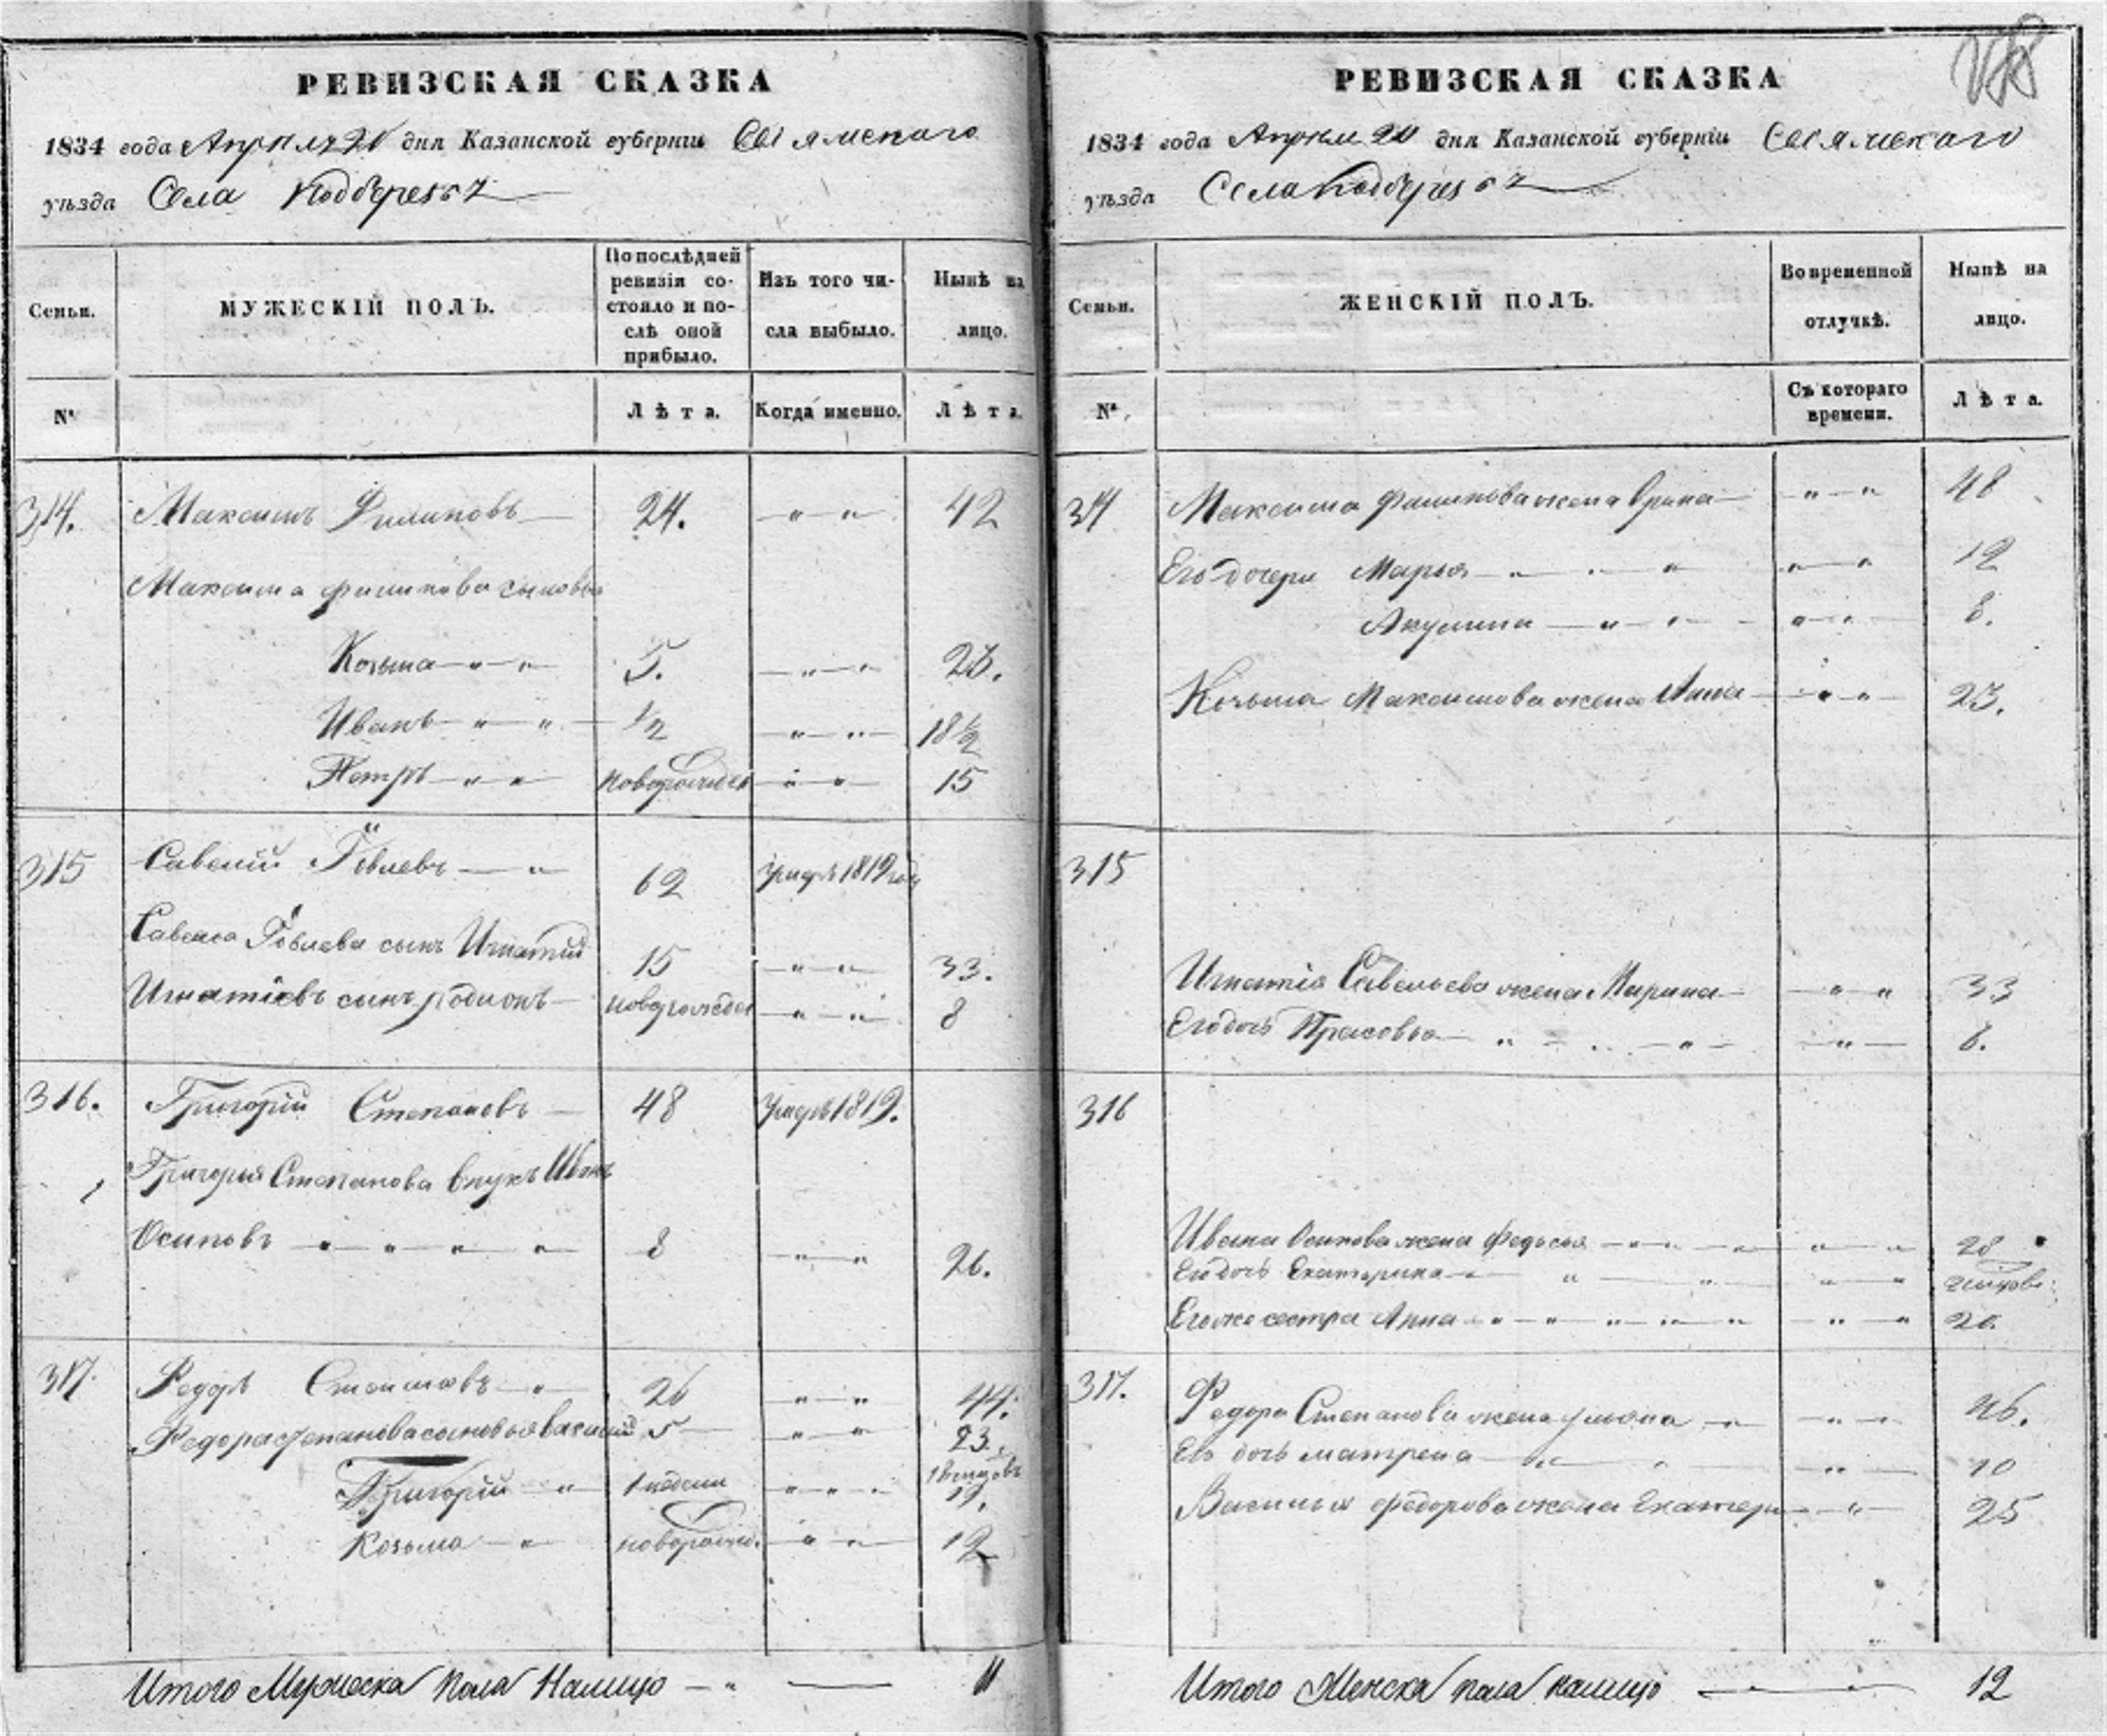 РЕВИЗСКАЯ СКАЗКА
1834 года Апреля 20 дня Казанской губерніи Свіяжскаго
уѣзда Села Подберезья
Семьи.
МУЖЕСКІЙ ПОЛЪ.
По послѣдней ревизіи состояло и послѣ оной прибыло.
Изъ того числа выбыло.
Нынѣ на лицо.
№
Лѣта.
Когда именно.
Лѣта.
314. Максимъ Филиповъ 24. 42
Максима Филипова сыновья
Козьма 5. 23.
Иванъ 1/2 18 1/2
Петръ новорожден 15
315 Савелій Іовлевъ 62 1819 год
Савелья Іовлева сынъ Игнатій 15 33.
Игнатіевъ сынъ Родіонъ новорожден 8
316. Григорій Степановъ 48 1819.
Григорья Степанова внукъ Иванъ
Осиповъ 8 26.
317. Федоръ Степановъ 26 44.
Федора Степанова сыновья Василій 5 23.
Григорій 1 недели 18
Козьма новорожд. 12
Итого Мужеска пола Налицо 11
РЕВИЗСКАЯ СКАЗКА
1834 года Апреля 20 дня Казанской губерніи Свіяжскаго
уѣзда Села Подберезья
Семьи.
ЖЕНСКІЙ ПОЛЪ.
Во временной отлучкѣ.
Нынѣ на лицо.
№
Съ котораго времени.
Лѣта.
314 Максима Филипова жена Орина 48
Его дочери Марья 12
Акулина 8.
Козьма Максимова жена Анна 23.
315
Игнатія Савельева жена Марина 33
Его дочь Прасовья 8.
316
Ивана Осипова жена Федосья 28
Его дочь Екатерина
Его же сестра Анна 20.
317. Федора Степанова жена Ульяна 46.
Его дочь Матрена 10
Василья Федорова жена Екатери 25
Итого Женска пола налицо 12